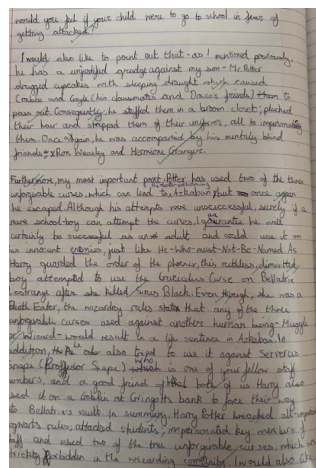 would you feel if your child were to go to school in fear of
getting attacked?
I would also like to point out that - as I mentioned previously,
he has a unjustified grudge against my son - Mr. Potter
drugged cupcakes with sleeping draught which caused
Crabbe and Goyle (his classmates and Draco's friends) them to
pass out. Consequently, he stuffed them in a broom closet, plucked
their hair and stripped them of their uniforms, all to impersonating
them. Once again, he was accompanied by his mentally blind
friends Ron Weasly and Hermione Granger.
Furthermore, my most important point, Potter has used two of the three
unforgivable curses, which can lead to Azkaban, but once again
he escaped. Although his attempts were unsuccessful, surely if a
mere school-boy can attempt the curses, I guarantee he will
certainly be successful as an adult and could use it on
his innocent enemies, just like He-Who-must-Not-Be-Named. As
Harry guarded the order of the phoenix, this ruthless, dimwitted
boy attempted to use the Cruciatus Curse on Bellatrix
Lestrange after she killed Sirius Black. Even though, she was a
Death Eater, the wizarding rules state that any of the three
unforgivable curses used against another human being - Muggle
Wizard - would result in a life sentence in Azkaban. In
addition, he also tried to use it against Serverus
Snape (Proffesor Snape) who is one of your fellow staff
members, and a good friend of both of us. Harry also
used it on a Goblin at Gringotts bank to force their way
to Bellatrix's vault. In summary, Harry Potter broke all
Hogwarts rules, attacked students, impersonated key members of
staff and used two of the tree unforgivable curses, which is
strictly forbidden in the wizarding community. I would also